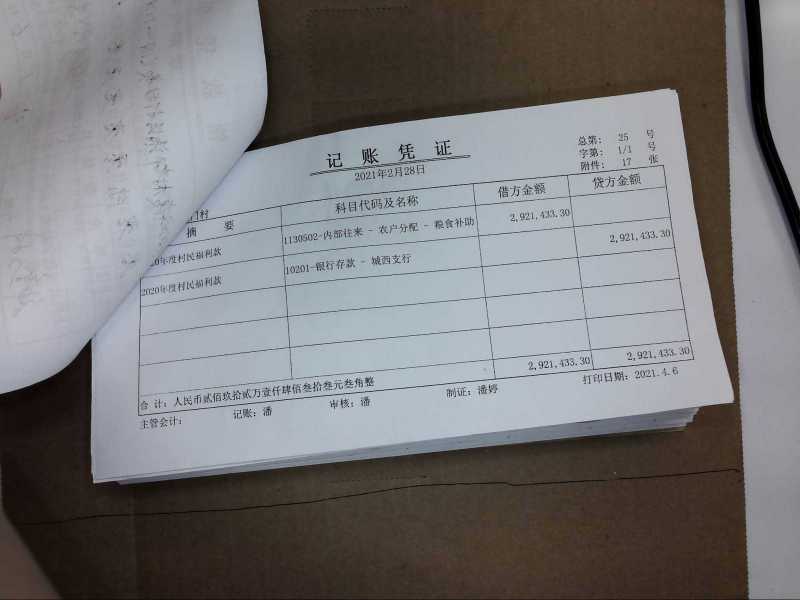 记账凭证
2021年2月28日
总第: 25 号
字第: 1/1 号
附件: 17 张
门村
摘 要 科目代码及名称 借方金额 贷方金额
20年度村民福利款 1130502-内部往来 - 农户分配 - 粮食补助 2,921,433.30
2020年度村民福利款 10201-银行存款 - 城西支行 2,921,433.30
合 计: 人民币贰佰玖拾贰万壹仟肆佰叁拾叁元叁角整 2,921,433.30 2,921,433.30
主管会计: 记账: 潘 审核: 潘 制证: 潘婷 打印日期: 2021.4.6